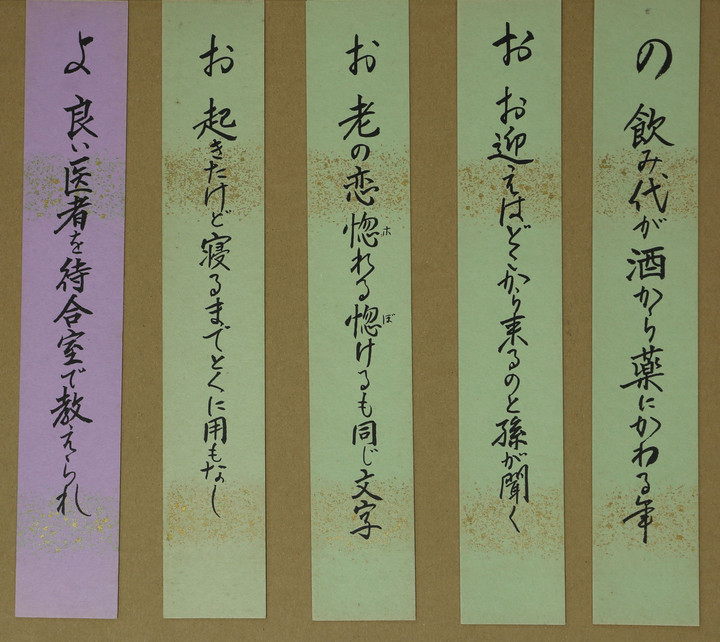 の 飲み代が酒から薬にかわる年
お お迎えはどこから来るのと孫が聞く
お 老の恋惚れる惚けるも同じ文字
ホ
ぼ
お 起きたけど寝るまでとくに用もなし
よ 良い医者を待合室で教えられ